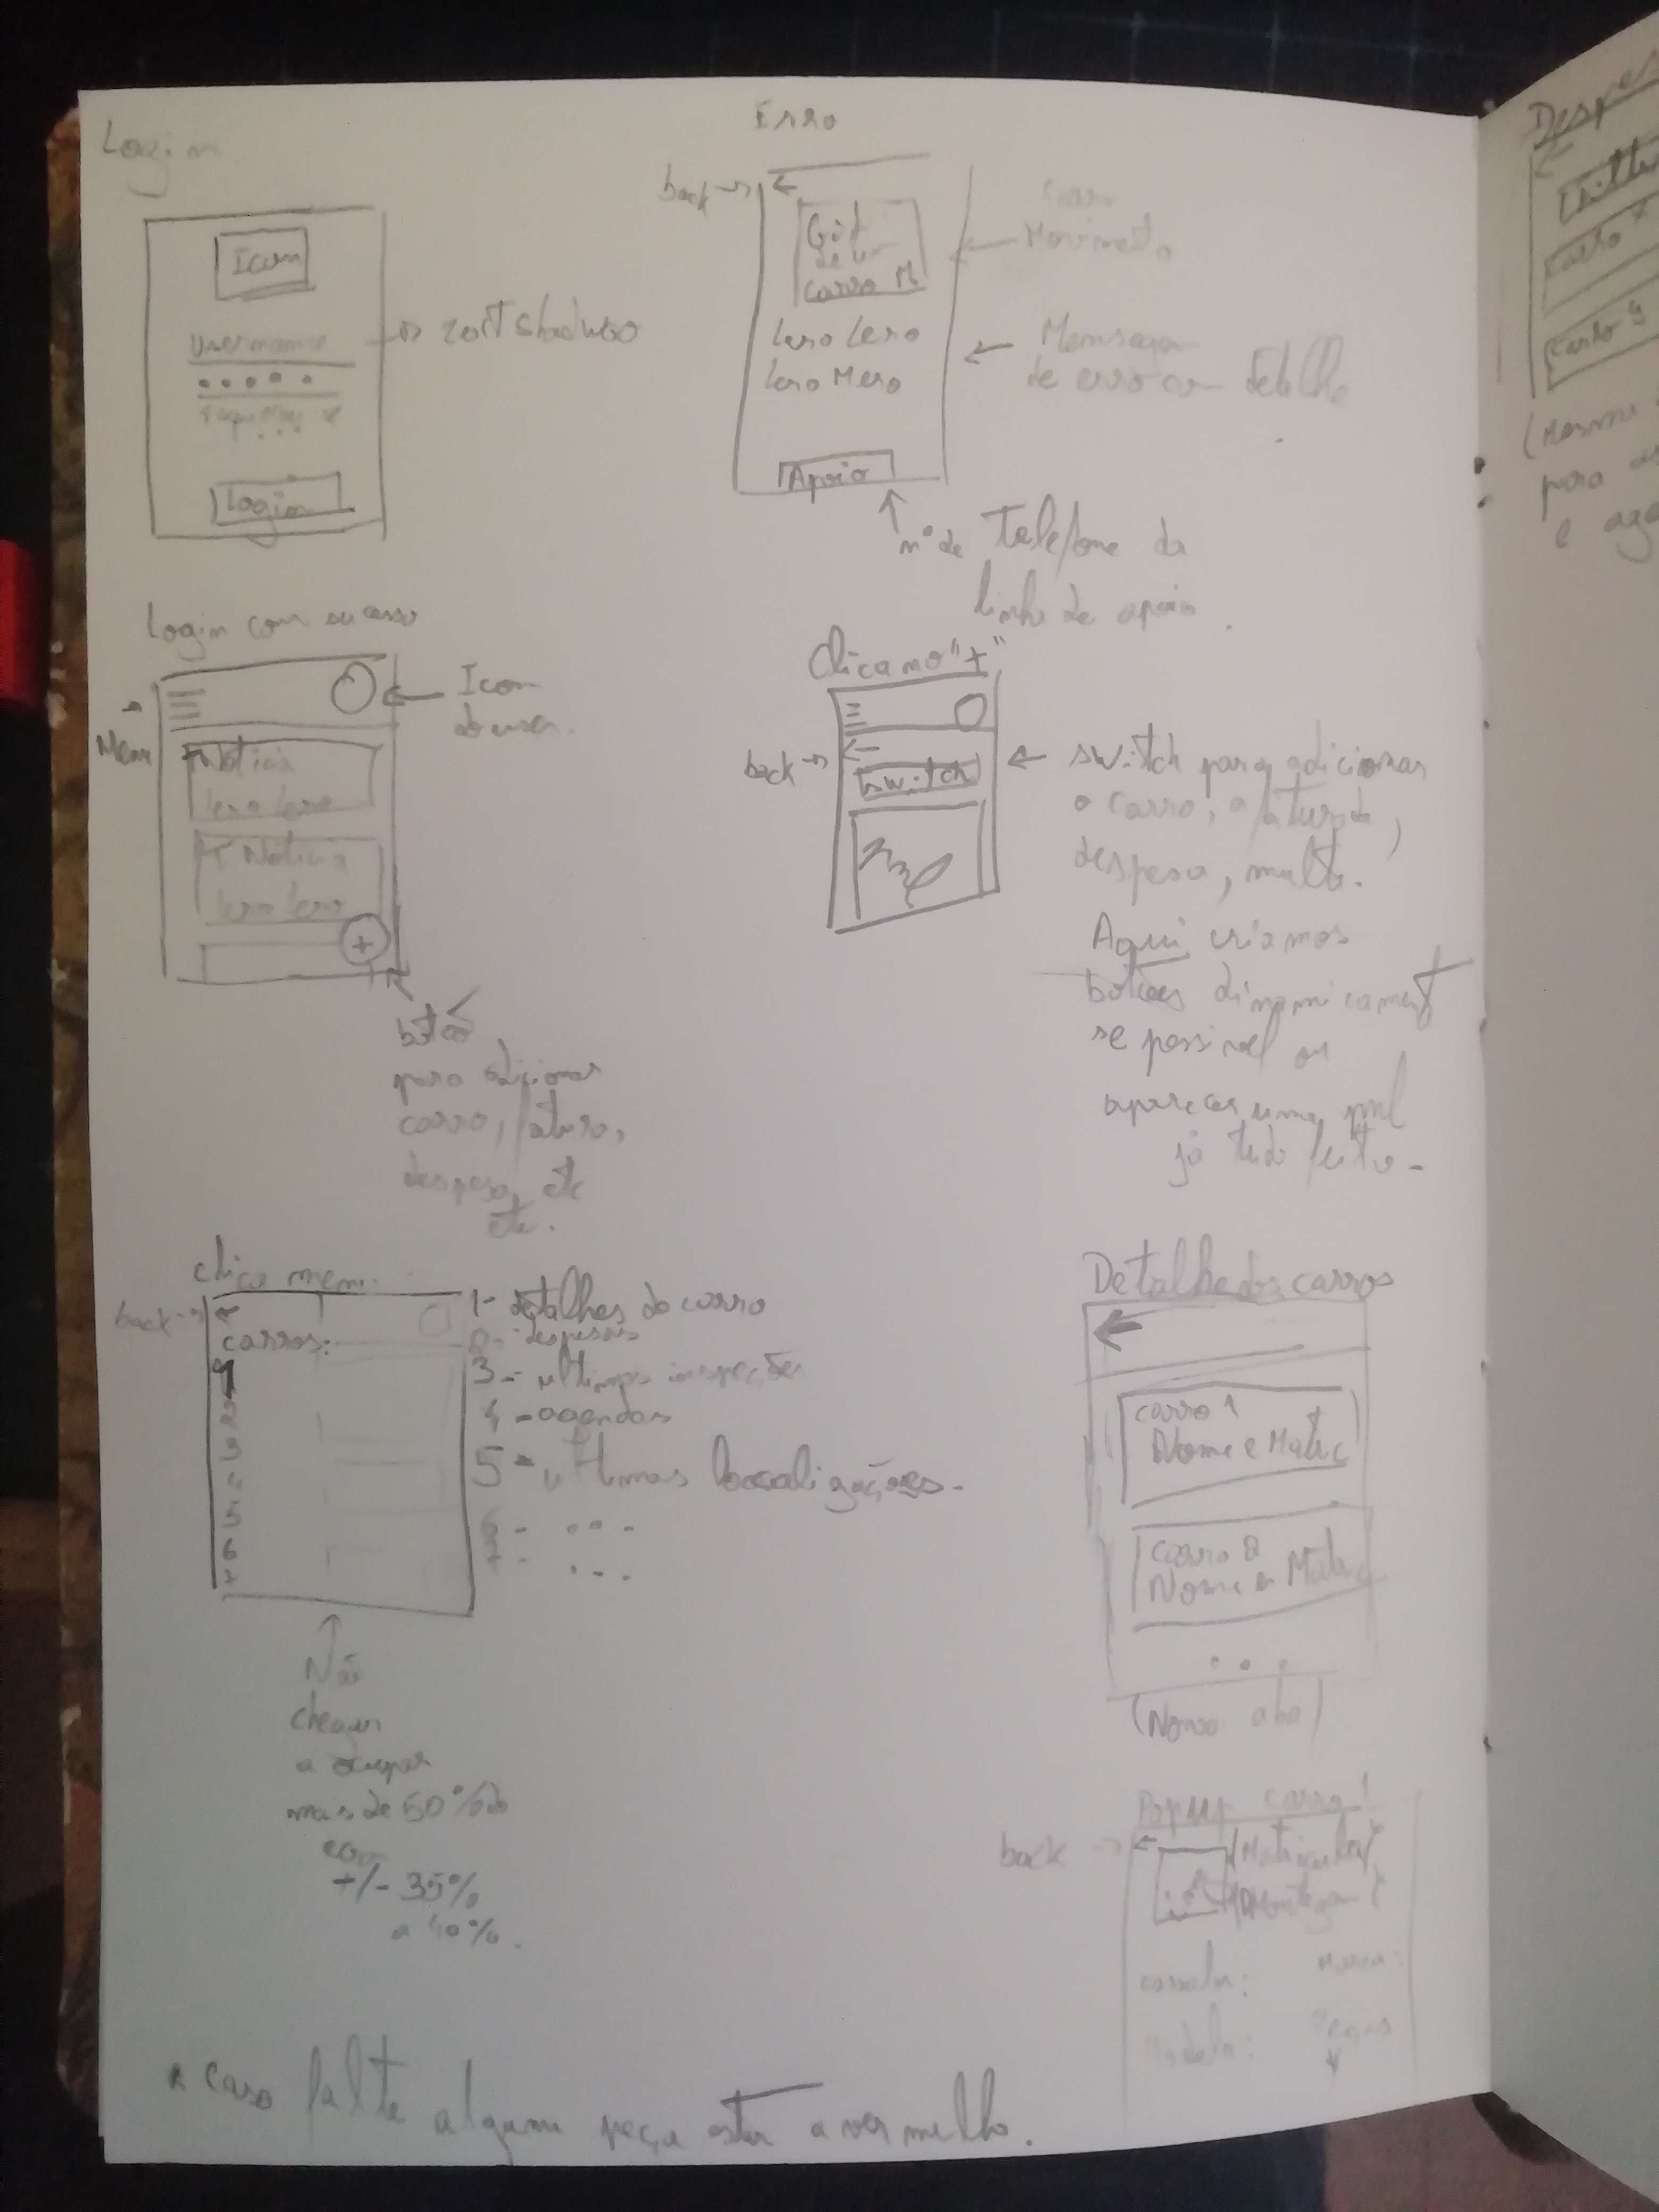 Login
Icon
Username
Login
soft shadow
Erro
back
Gif
de um
carro
lero lero
lero Mero
Apoio
Movimento
Mensagem
de erro com detalhe
nº de telefone da
linha de apoio.
Login com sucesso
Menu
Icon
do user.
Noticia
lero lero
Noticia
lero lero
+
botão
para adicionar
carro, fatura,
despesa, etc
etc.
Clica no "+"
back
switch
switch para adicionar
o carro, a fatura de,
despesa, multa.
Aqui criamos
botões dinamicament
se possivel ou
aparecer uma pnl
já tudo feito.
clica menu
back
carros:
1
2
3
4
5
6
7
1- detalhes do carro
2- despesas
3- ultimas inspeções
4- agendas
5- ultimas localizações.
6- ...
7- ...
Não
chegar
a ocupar
mas de 50% do
+/- 35%
a 40%.
Detalhe dos carros
carro 1
Nome e Matric
carro 2
Nome e Matric
...
(Nova aba)
Popup carro 1
back
(Matricula)
Marca:
Modelo:
Peças
* Caso falte alguma peça estar a vermelho.
Carro
Carro
(Mesmo
para as
e age